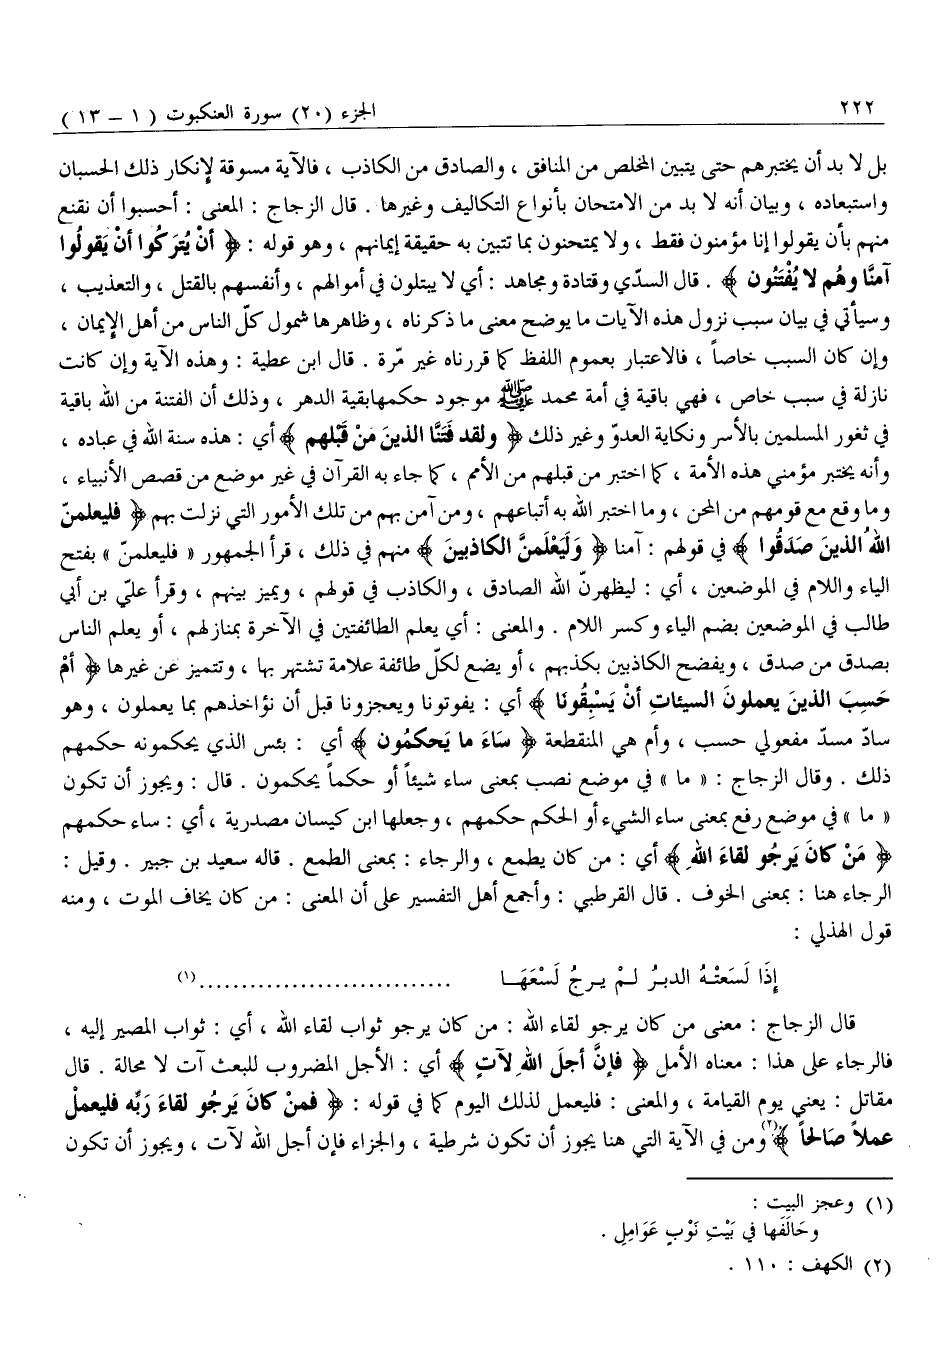 ٢٢٢
الجزء (٢٠) سورة العنكبوت ( ١ – ١٣ )
بل لا بد أن يختبرهم حتى يتبين المخلص من المنافق ، والصادق من الكاذب ، فالآية مسوقة لإنكار ذلك الحسبان
واستبعاده ، وبيان أنه لا بد من الامتحان بأنواع التكاليف وغيرها . قال الزجاج : المعنى : أحسبوا أن نقنع
منهم بأن يقولوا إنا مؤمنون فقط ، ولا يمتحنون بما تتبين به حقيقة إيمانهم ، وهو قوله : ﴿ أنْ يُتركُوا أنْ يَقولُوا
آمنَّا وهُم لا يُفْتَنُون ﴾ . قال السدّي وقتادة ومجاهد : أي لا يبتلون في أموالهم ، وأنفسهم بالقتل ، والتعذيب ،
وسيأتي في بيان سبب نزول هذه الآيات ما يوضح معنى ما ذكرناه ، وظاهرها شمول كلّ الناس من أهل الإيمان ،
وإن كان السبب خاصاً ، فالاعتبار بعموم اللفظ كما قررناه غير مرّة . قال ابن عطية : وهذه الآية وإن كانت
نازلة في سبب خاص ، فهي باقية في أمة محمد ﷺ موجود حكمهابقية الدهر ، وذلك أن الفتنة من الله باقية
في ثغور المسلمين بالأسر ونكاية العدوّ وغير ذلك ﴿ ولقد فَتَنَّا الذينَ مَنْ قَبْلهم ﴾ أي : هذه سنة الله في عباده ،
وأنه يختبر مؤمني هذه الأمة ، كما اختبر من قبلهم من الأمم ، كما جاء به القرآن في غير موضع من قصص الأنبياء ،
وما وقع مع قومهم من المحن ، وما اختبر الله به أتباعهم ، ومن آمن بهم من تلك الأمور التي نزلت بهم ﴿ فليعلمنّ
اللهُ الذينَ صَدَقُوا ﴾ في قولهم : آمنا ﴿ وَلَيَعْلَمنَّ الكَاذبينَ ﴾ منهم في ذلك ، قرأ الجمهور « فليعلمنّ » بفتح
الياء واللام في الموضعين ، أي : ليظهرنّ الله الصادق ، والكاذب في قولهم ، ويميز بينهم ، وقرأ عليّ بن أبي
طالب في الموضعين بضم الياء وكسر اللام . والمعنى : أي يعلم الطائفتين في الآخرة بمنازلهم ، أو يعلم الناس
بصدق من صدق ، ويفضح الكاذبين بكذبهم ، أو يضع لكلّ طائفة علامة تشتهر بها ، وتتميز عن غيرها ﴿ أمْ
حَسِبَ الذينَ يعملونَ السيئاتِ أنْ يَسْبِقُونَا ﴾ أي : يفوتونا ويعجزونا قبل أن نؤاخذهم بما يعملون ، وهو
سادّ مسدّ مفعولي حسب ، وأم هي المنقطعة ﴿ سَاءَ ما يَحكمُون ﴾ أي : بئس الذي يحكمونه حكمهم
ذلك . وقال الزجاج : « ما » في موضع نصب بمعنى ساء شيئاً أو حكماً يحكمون . قال : ويجوز أن تكون
« ما » في موضع رفع بمعنى ساء الشيء أو الحكم حكمهم ، وجعلها ابن كيسان مصدرية ، أي : ساء حكمهم
﴿ مَنْ كانَ يَرجُو لقاءَ اللهِ ﴾ أي : من كان يطمع ، والرجاء : بمعنى الطمع . قاله سعيد بن جبير . وقيل :
الرجاء هنا : بمعنى الخوف . قال القرطبي : وأجمع أهل التفسير على أن المعنى : من كان يخاف الموت ، ومنه
قول الهذلي :
إِذَا لَسَعتْهُ الدبرُ لـمْ يرجُ لَسْعَهَـا ..............................(١)
قال الزجاج : معنى من كان يرجو لقاء الله : من كان يرجو ثواب لقاء الله ، أي : ثواب المصير إليه ،
فالرجاء على هذا : معناه الأمل ﴿ فإنَّ أجلَ اللهِ لآتٍ ﴾ أي : الأجل المضروب للبعث آت لا محالة . قال
مقاتل : يعني يوم القيامة ، والمعنى : فليعمل لذلك اليوم كما في قوله : ﴿ فمنْ كانَ يَرجُو لقاءَ رَبِّه فليعملْ
عملاً صَالحاً ﴾(٢) ومن في الآية التي هنا يجوز أن تكون شرطية ، والجزاء فإن أجل الله لآت ، ويجوز أن تكون
(١) وعجز البيت :
وحَالَفَها في بَيْتِ نَوْبٍ عَوَامِلِ .
(٢) الكهف : ١١٠ .